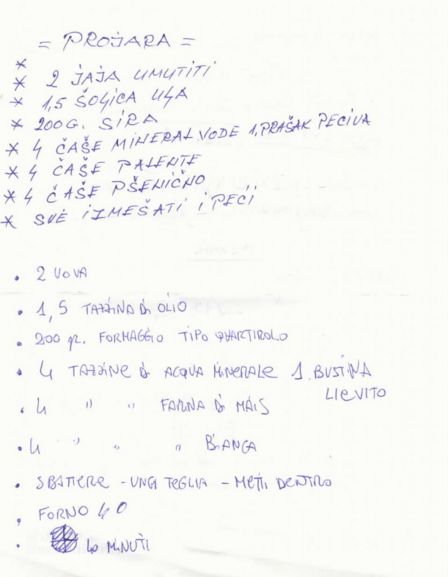 = PROJARA =
*
* 2 JAJA UMUTITI
* 1,5 ŠOLJICA ULJA
* 200 G. SIRA
* 4 ČAŠE MINERAL VODE 1, PRAŠAK PECIVA
* 4 ČAŠE PALENTE
* 4 ČAŠE PŠENIČNO
* SVE IZMEŠATI I PECI
• 2 UOVA
• 1,5 TAZZINA DI OLIO
• 200 gr. FORMAGGIO TIPO QUARTIROLO
• 4 TAZZINE DI ACQUA MINERALE 1 BUSTINA
LIEVITO
• 4 " " FARINA DI MAIS
• 4 " " " BIANCA
• SBATTERE - UNGI TEGLIA - METTI DENTRO
• FORNO 40
• 40 MINUTI